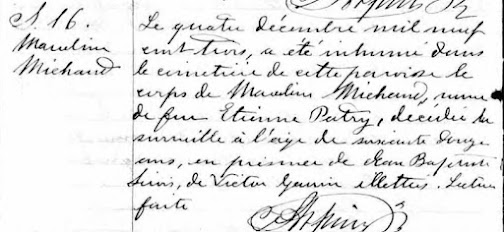 S. 16.
Marceline
Michaud
Le quatre décembre mil neuf
cent trois, a été inhumé dans
le cimetière de cette paroisse le
corps de Marceline Michaud, veuve
de feu Etienne Patry, décédée la
surveille à l'âge de soixante douze
ans, en présence de Jean Baptiste
de Victor illettrés. Lecture
faite